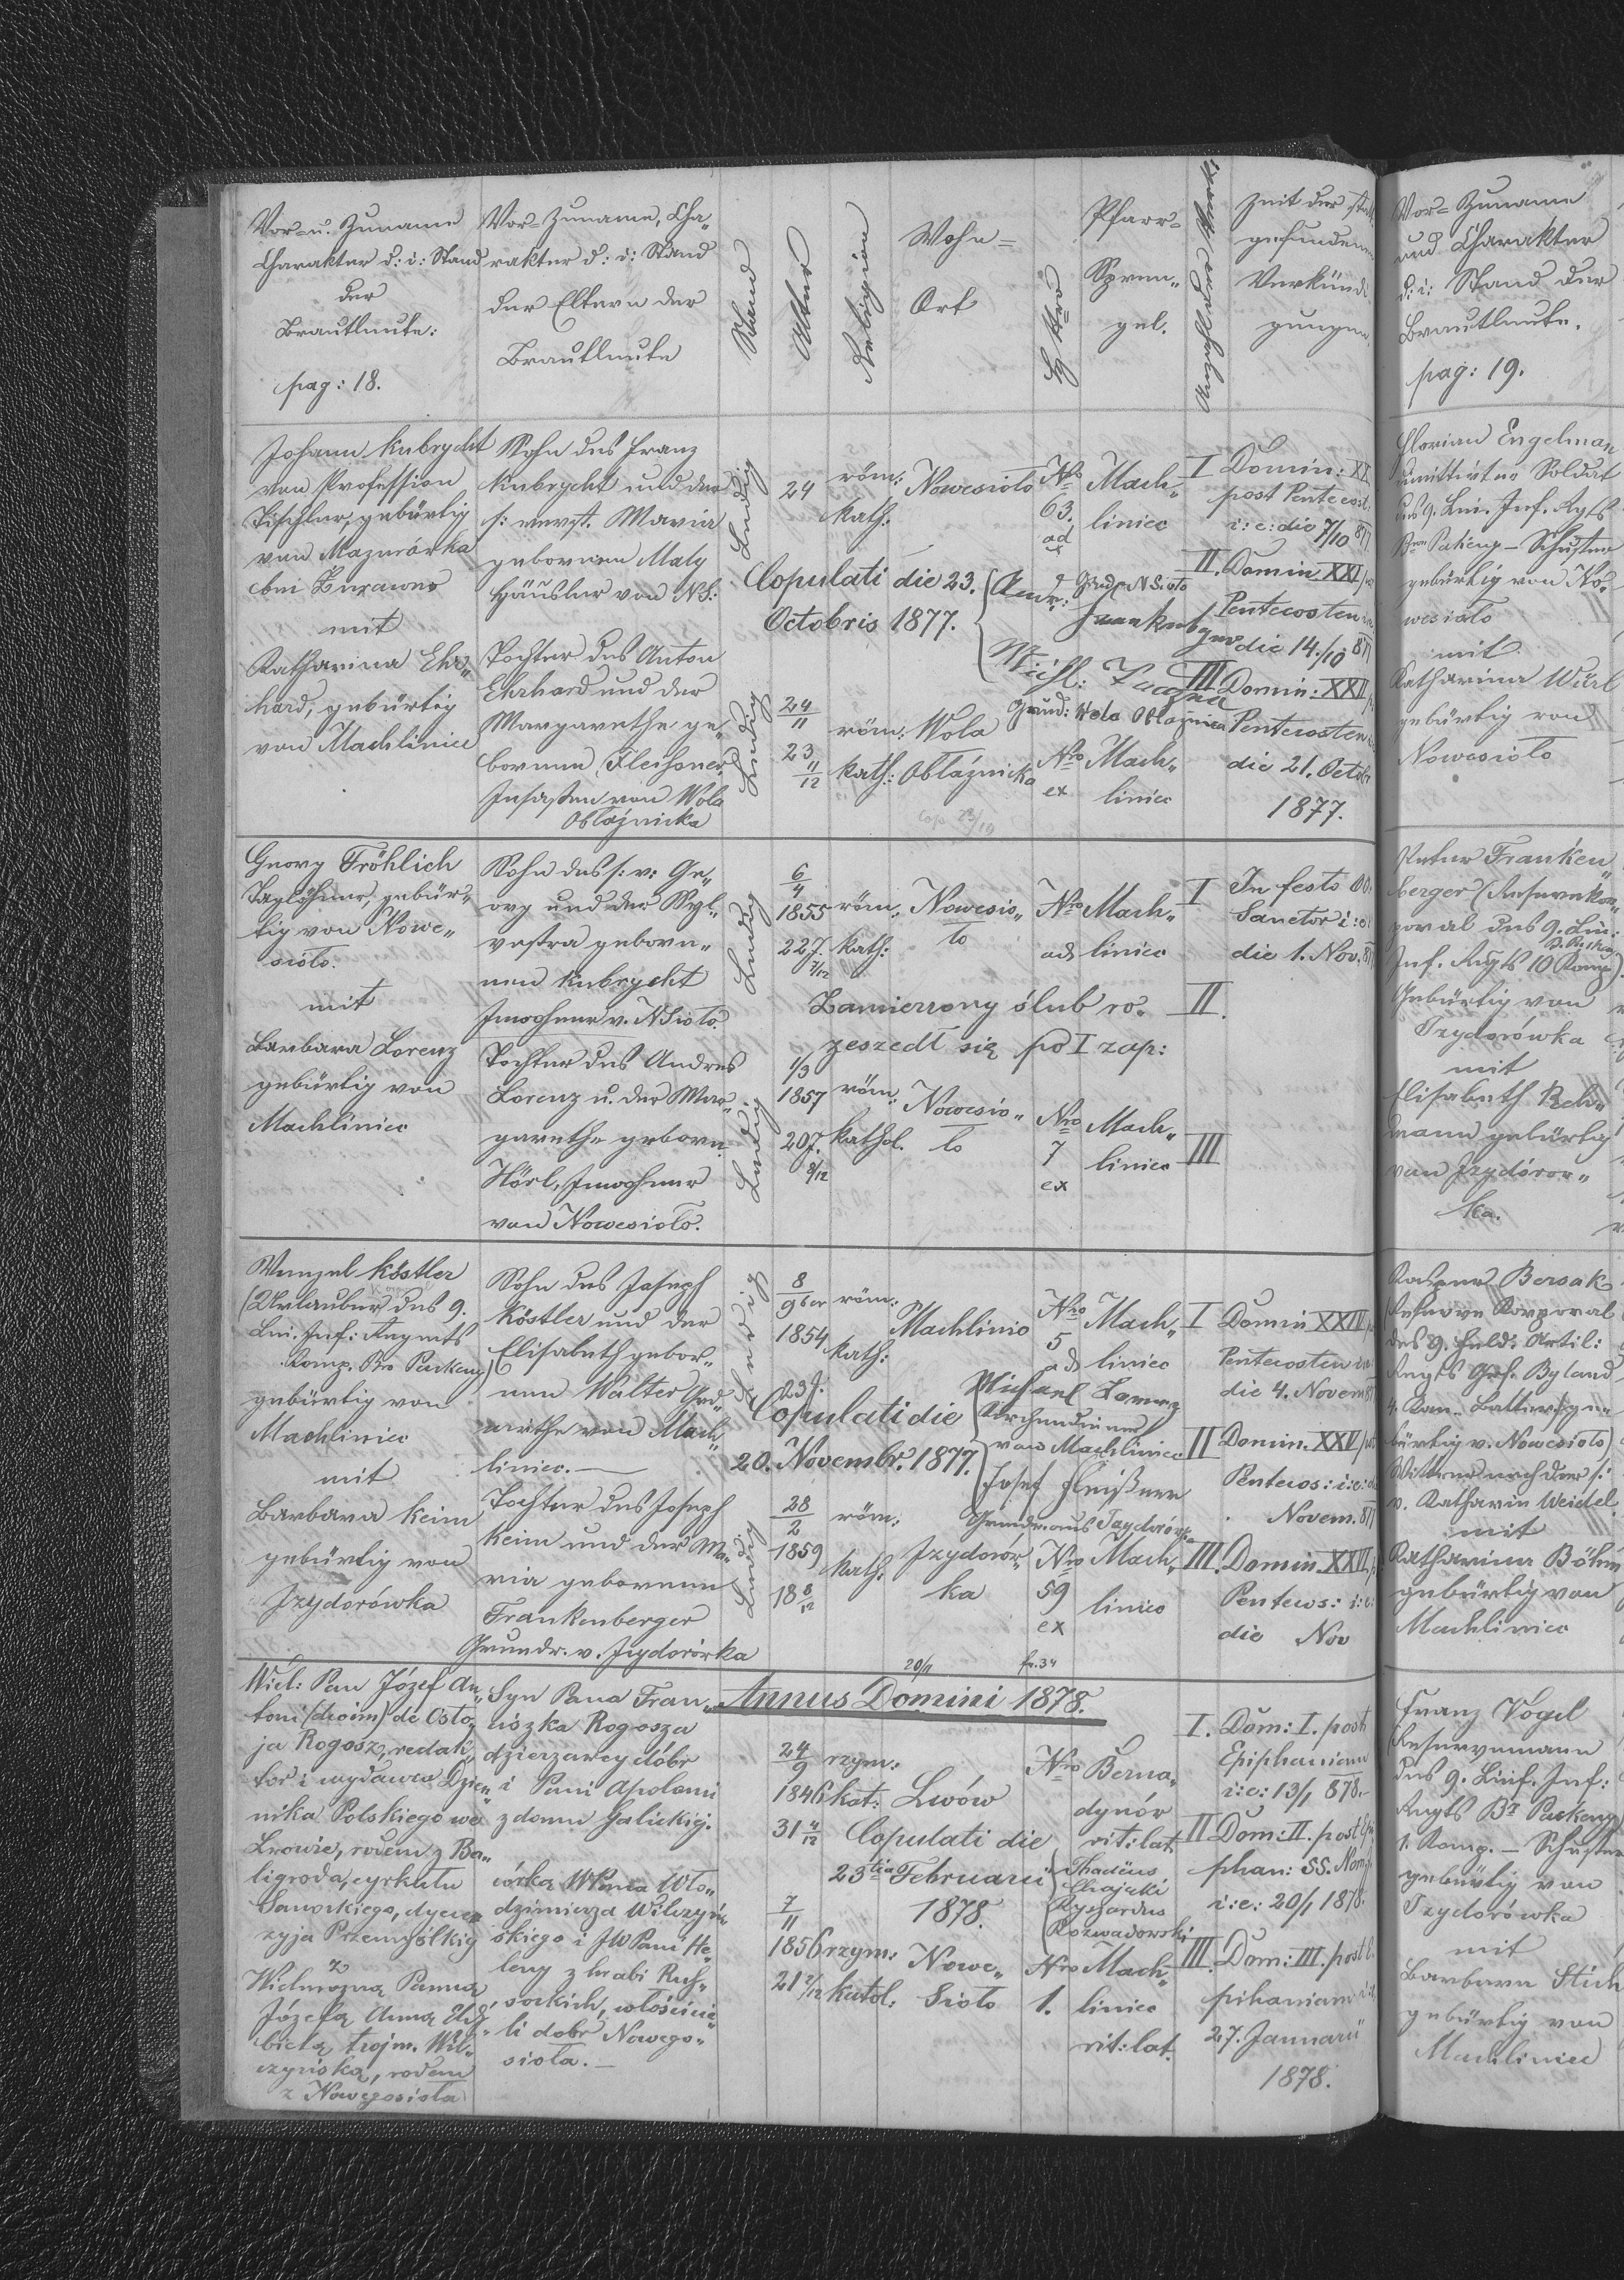 Vor= u. Zuname
Charakter d: i: Stand
der
Brautleute:
pag: 18.
Vor= Zuname, Cha„
rakter d: i: Stand
der Eltern der
Brautleute
Stand
Alter
Religion
Wohn=
Ort
Pfarr=
Spren„
gel.
Zeit der
gefundenen
Verkünd
gungen
Johann Kubrycht
von Profession
Tischler, gebürtig
von Mazurówka
bei Żurawno
mit
Katharina Ehr„
hard, gebürtig
von Machliniec
Sohn des Franz
Kubrycht und der
s: verst. Maria
gebornen Maly
Häusler von NS:
Tochter des Anton
Ehrhard und der
Margarethe ge„
bornen Fleißner,
Insassen von Wola
Obłaźnicka
Ledig
24
röm:
kath:
Nowesioło
Nro
63.
ad
Mach„
liniec
I Domin: XX
post Pentecost
i: e: die 7/10 877
Copulati die 23.
Octobris 1877.
II. Domin XXI
Pentecosten
die 14./10 877
III Domin: XXII
Pentecosten
die 21. Octob
1877.
Ledig
24/11
23 11/12
röm:
kath:
Wola
Obłaźnicka
Nro
ex
Mach„
liniec
Cop 23/10
Georg Fröhlich
Taglöhner, gebür„
tig von Nowe„
sioło.
mit
Barbara Lorenz
gebürtig von
Machliniec
Sohn des s: v: Ge„
org und der Syl„
vestra gebor„
nen Kubrycht
Inwohner v. NSioło.
Tochter des Andres
Lorenz u. der Mar„
garethe geborn.
Hörl, Inwohner
von Nowesioło.
Ledig
6/4
1855
22 J.
7/12
röm:
kath:
Nowesio„
ło
Nro
ad
Mach„
liniec
I In festo OO.
Sanctor i: e:
die 1. Nov. 877
Zamierzony ślub ro„
zeszedł się po I zap:
II.
Ledig.
1/3
1857
20 J.
8/12
röm:
kathol.
Nowesio„
ło
Nro
7
ex
Mach„
liniec
III
Wenzel Köstler
(Urlauber des 9.
Lin. Inf: Regmts
Komp. Br. Packeny)
gebürtig von
Machliniec
mit
Barbara Keim
gebürtig von
Izydorówka
Sohn des Joseph
Köstler und der
Elisabeth gebor„
nen Walter Grd„
wirthe von Mach„
liniec. —
Tochter des Joseph
Keim und der Ma„
ria gebornen
Frankenberger
Grundr. v. Izydorówka
Ledig
8/9ber
1854
23 J.
röm:
kath:
Machlinie
Nro
5
ad
Mach„
liniec
I Domin XXIV
Pentecosten
die 4. Novem 877
Copulati die
20. Novembr. 1877.
Michael Lorenz
Kirchendiener
von Machliniec
Josef Fleißner
Grundr. aus Izydorówka
II Domin. XXV
Pentecos: i: e:
Novem. 877
Ledig
28/2
1859
18 8/12
röm:
kath:
Izydorów„
ka
Nro
59
ex
Mach„
liniec
III. Domin. XXVI
Pentecos: i: e:
die Nov
20/11
fr. 34
Annus Domini 1878.
Wiel: Pan Józef An„
toni (dwoim) de Osto„
ja Rogosz, redak„
tor i wydawca Dzien„
nika Polskiego we
Lwowie, rodem z Ba„
ligroda, cyrkułu
Sanockiego, dyece„
zyja Przemyślkiej
z
Wielmożną Panną
Józefą Anną Elż„
bietą trojm. Wil„
czyńską, rodem
z Nowegosioła
Syn Pana Fran„
ciszka Rogosza
dzierzawcy dóbr
i Pani Apolonii
z domu Galickiej.
córka WPana Wło„
dzimierza Wilczyń„
skiego i JWPani He„
leny z hrabi Rus„
sockich, właścicie„
li dobr Nowego„
sioła. —
24/9
1846
31 4/12
rzym:
kat:
Lwów
Nro
Berna„
dynów
rit: lat
I. Dom: I. post
Epiphaniam
i: e: 13/1 878.
Copulati die
23tia Februarii
1878.
Thadäus
Chajęcki
Ryszardus
Rozwadowski
II Dom: II. post Epi
phan: SS. Nom.
i: e: 20/1 1878.
7/11
1856
21 2/12
rzym:
katol:
Nowe„
Sioło
Nro
1.
Mach„
liniec
rit: lat.
III. Dom: III. post E
piphaniam
27. Januarii
1878.
Vor= Zuname
und Charakter
d: i: Stand der
Brautleute.
pag: 19.
Florian Engelman
Soldat
des 9. Lin. Inf. Rgts
Br. Packeny — Schuster
gebürtig von No„
wesioło
mit
Katharina Würl
gebürtig von
Nowesioło
Peter Franken„
berger (Reservekor„
poral des 9. Lin:
Inf. Rgts 10 Komp)
Gebürtig von
Izydorówka
mit
Elisabeth Reh„
mann gebürtig
von Izydórow„
ka.
Bersak
Reserve Korporal
des 9. Feld: Artil:
Rgts Grf. Byland
gebürtig v. Nowesioło)
Wittwer nach der s:
v. Katharin Weidel
mit
Katharina Böhm
gebürtig von
Machliniec
Franz Vogel
Reservemann
des 9. Lin. Inf:
Rgts Br Packeny
1. Komp. — Schuster
gebürtig von
Izydorówka
mit
Barbara Stich
gebürtig von
Machliniec